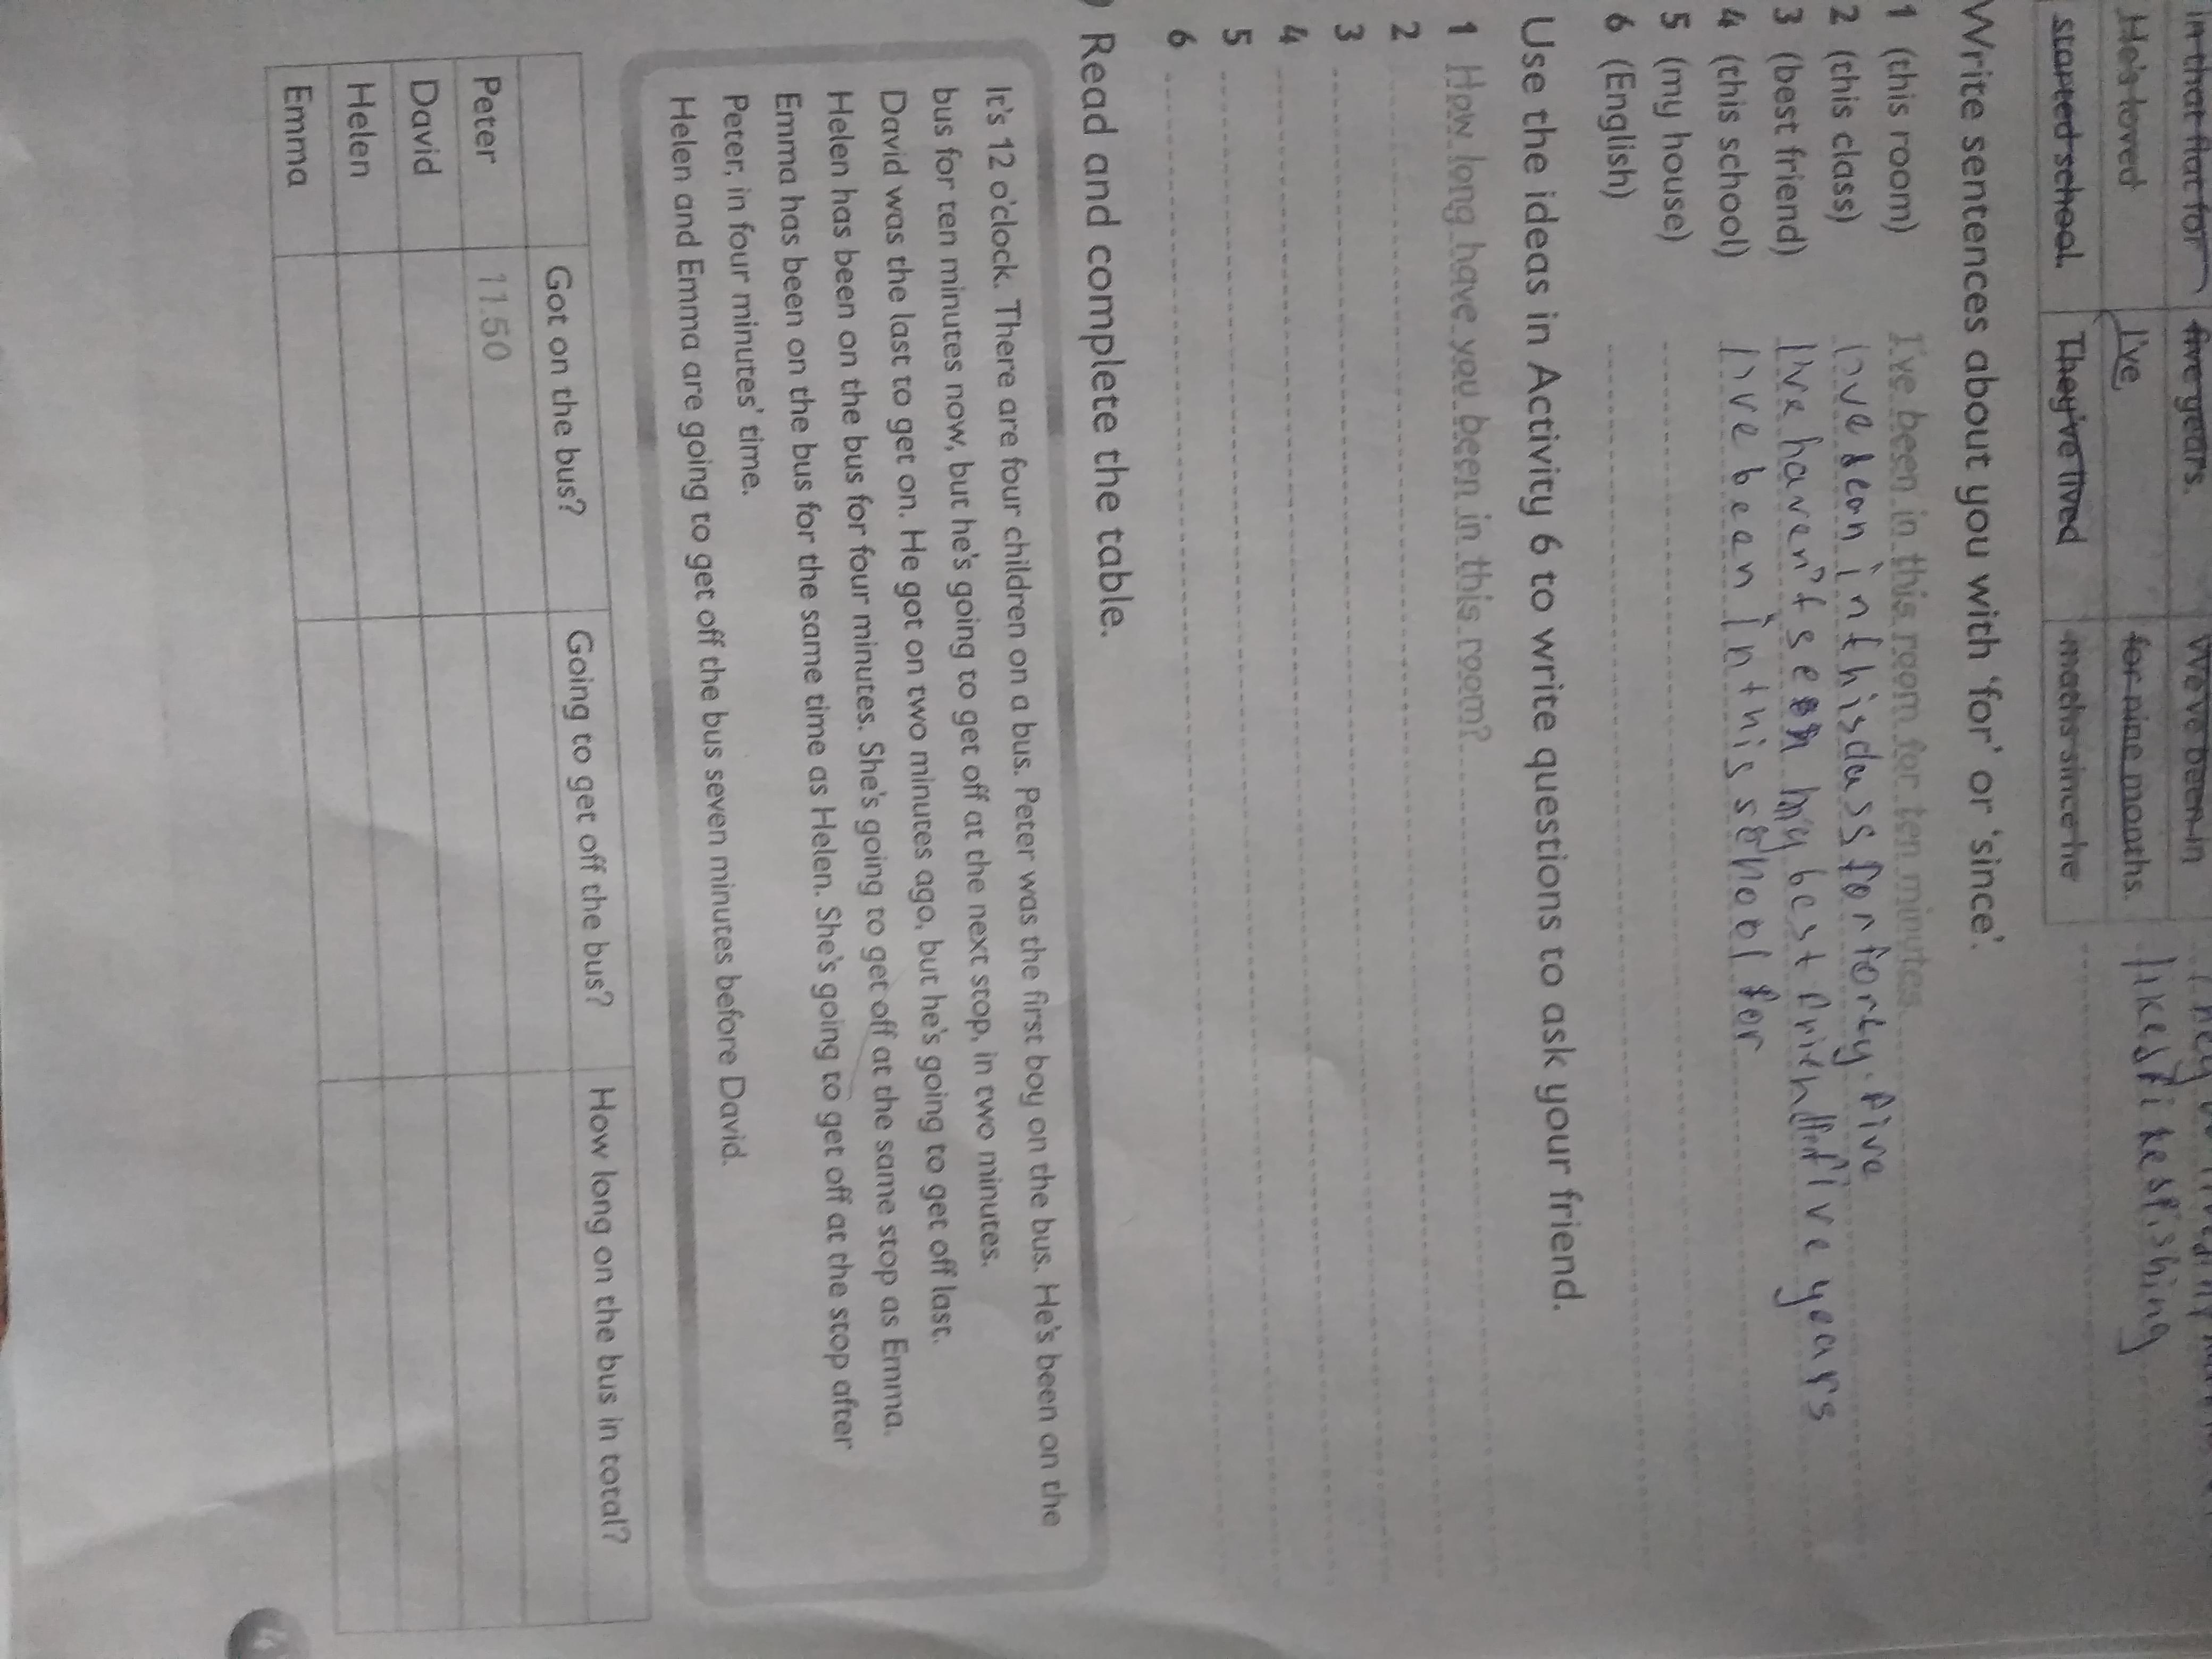 in that flat for five years. We've been in
He's loved I've for nine months. likes fishing
started school. They've lived maths since he
Write sentences about you with 'for' or 'since'.
1 (this room) I've been in this room for ten minutes.
2 (this class) in this class for forty-five
3 (best friend) I've haven't seen my best friend five years
4 (this school) I've been in this school for
5 (my house)
6 (English)
Use the ideas in Activity 6 to write questions to ask your friend.
1 How long have you been in this room?
2
3
4
5
6
Read and complete the table.
It's 12 o'clock. There are four children on a bus. Peter was the first boy on the bus. He's been on the
bus for ten minutes now, but he's going to get off at the next stop, in two minutes.
David was the last to get on. He got on two minutes ago, but he's going to get off last.
Helen has been on the bus for four minutes. She's going to get off at the same stop as Emma.
Emma has been on the bus for the same time as Helen. She's going to get off at the stop after
Peter, in four minutes' time.
Helen and Emma are going to get off the bus seven minutes before David.
Got on the bus? Going to get off the bus? How long on the bus in total?
Peter 11.50
David
Helen
Emma